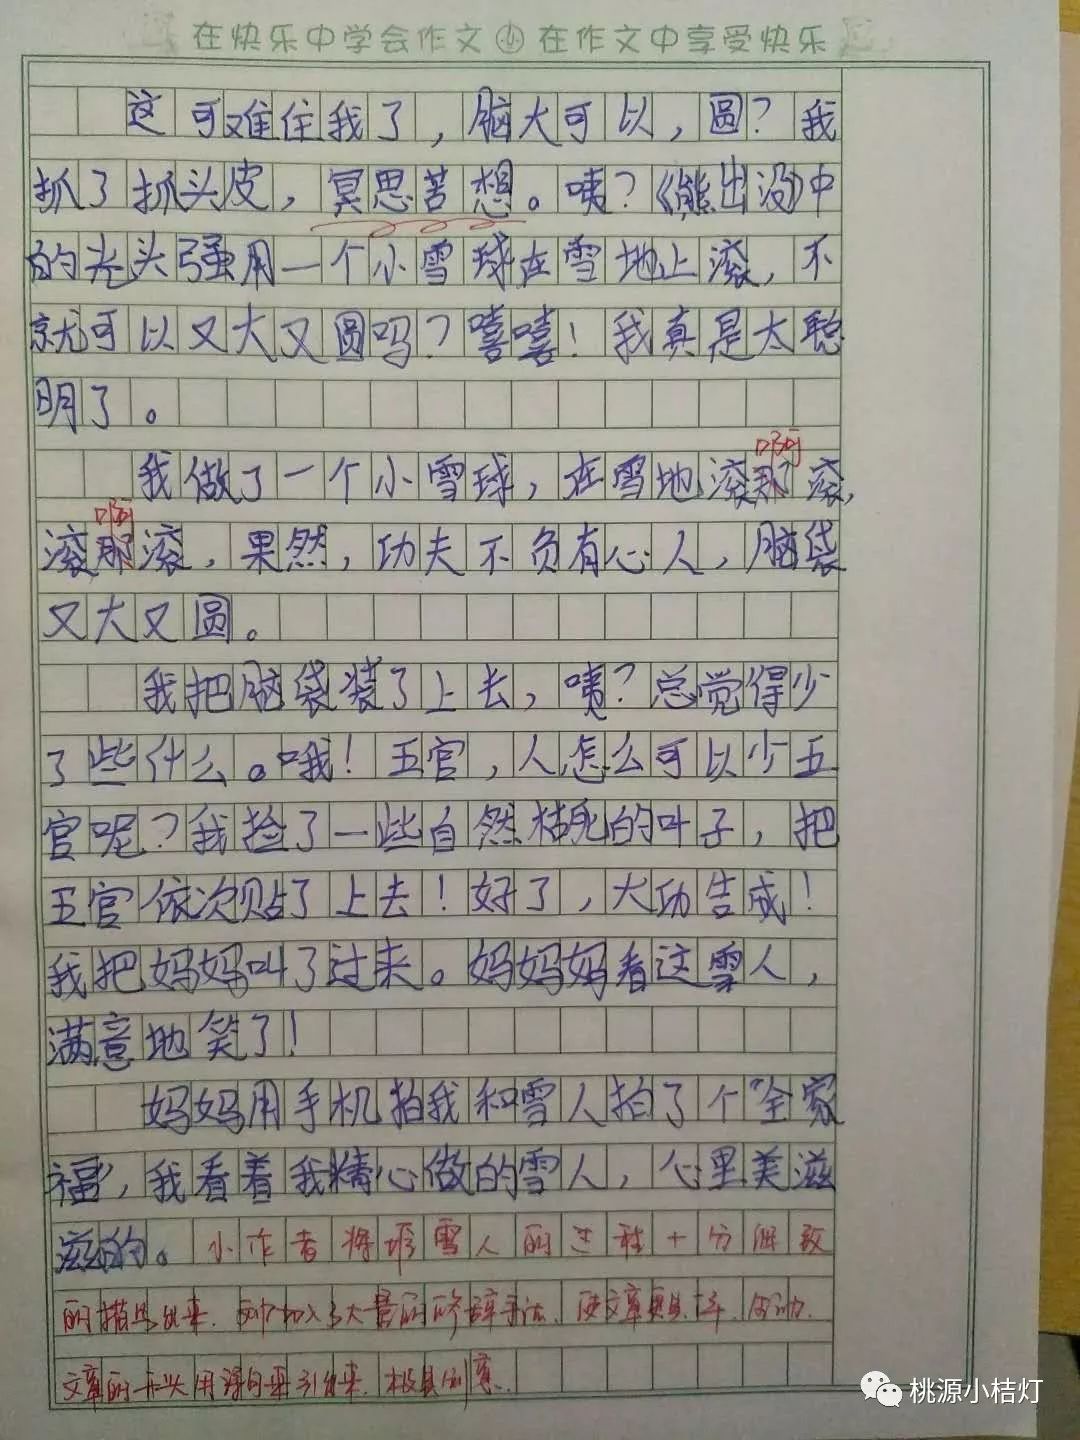 在快乐中学会作文 小 在作文中享受快乐
这可难住我了，脑大可以，圆？我
抓了抓头皮，冥思苦想。咦？《熊出没》中
的光头强用一个小雪球在雪地上滚，不
就可以又大又圆吗？嘻嘻！我真是太聪
明了。
啊
我做了一个小雪球，在雪地滚那滚，
啊
滚那滚，果然，功夫不负有心人，脑袋
又大又圆。
我把脑袋装了上去，咦？总觉得少
了些什么。哦！五官，人怎么可以少五
官呢？我捡了一些自然枯死的叶子，把
五官依次贴了上去！好了，大功告成！
我把妈妈叫了过来。妈妈妈看这雪人，
满意地笑了！
妈妈用手机拍我和雪人拍了个“全家
福”，我看着我精心做的雪人，心里美滋
滋的。小作者将堆雪人的过程十分细致
的描写出来，加入了大量的修辞手法，使文章更具
文章的开头用诗句来引出来，极具创意。
桃源小桔灯